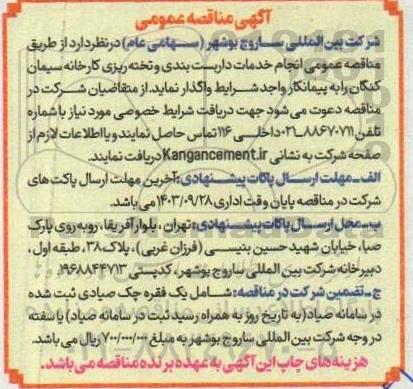 آگهی مناقصه عمومی
شرکت بین المللی ساروج بوشهر (سهامی عام) درنظردارد از طریق
مناقصه عمومی انجام خدمات داربست بندی و تخته ریزی کارخانه سیمان
کنگان را به پیمانکار واجد شرایط واگذار نماید. از متقاضیان شرکت در
مناقصه دعوت می شود جهت دریافت شرایط خصوصی مورد نیاز با شماره
تلفن ۸۸۶۷۰۷۱۱-۰۲۱ داخلی ۱۱۶ تماس حاصل نمایند و یا اطلاعات لازم از
صفحه شرکت به نشانی Kangancement.ir دریافت نمایند.
الف-مهلت ارسال پاکات پیشنهادی: آخرین مهلت ارسال پاکت های
شرکت در مناقصه پایان وقت اداری ۱۴۰۳/۰۹/۲۸ می باشد.
ب-محل ارسال پاکات پیشنهادی: تهران، بلوار آفریقا، روبه روی پارک
صبا، خیابان شهید حسین بنیسی (فرزان غربی)، پلاک ۳۸، طبقه اول،
دبیرخانه شرکت بین المللی ساروج بوشهر، کدپستی ۱۹۶۸۸۴۴۷۱۳
ج-تضمین شرکت در مناقصه: شامل یک فقره چک صیادی ثبت شده
در سامانه صیاد (به تاریخ روز به همراه رسید ثبت در سامانه صیاد) یا سفته
در وجه شرکت بین المللی ساروج بوشهر به مبلغ ۷۰۰/۰۰۰/۰۰۰ ریال می باشد.
هزینه های چاپ این آگهی به عهده برنده مناقصه می باشد.